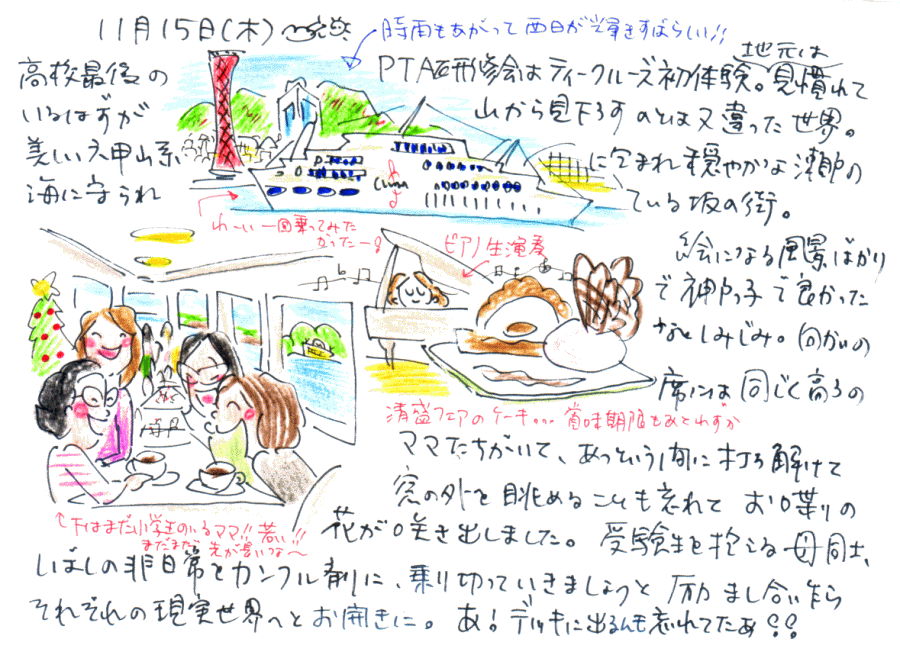 11月15日(木)
時雨もあがって西日が輝きすばらしい!!
高校最後の PTA研修会はティークルーズ初体験。地元は見慣れて
いるはずが 山から見下ろすのとは又違った世界。
美しい六甲山系に包まれ穏やかな瀬戸の
海に守られている坂の街。
China
わーい一回乗ってみた
かったー
ピアノ生演奏
絵になる風景ばかり
で神戸っ子で良かった
なとしみじみ。向かいの
席には同じく高3の
清盛フェアのケーキ… 賞味期限もあとわずか
ママたちがいて、あっという間に打ち解けて
窓の外を眺めることも忘れて お喋りの
花が咲き出しました。受験生を抱える母同士、
下はまだ小学生のいるママ!!若い!!
まだまだ先が長いなぁ〜
しばしの非日常をカンフル剤に、乗り切っていきましょうと 励まし合いながら
それぞれの現実世界へとお開きに。 あ!デッキに出るんも忘れてたぁ!!